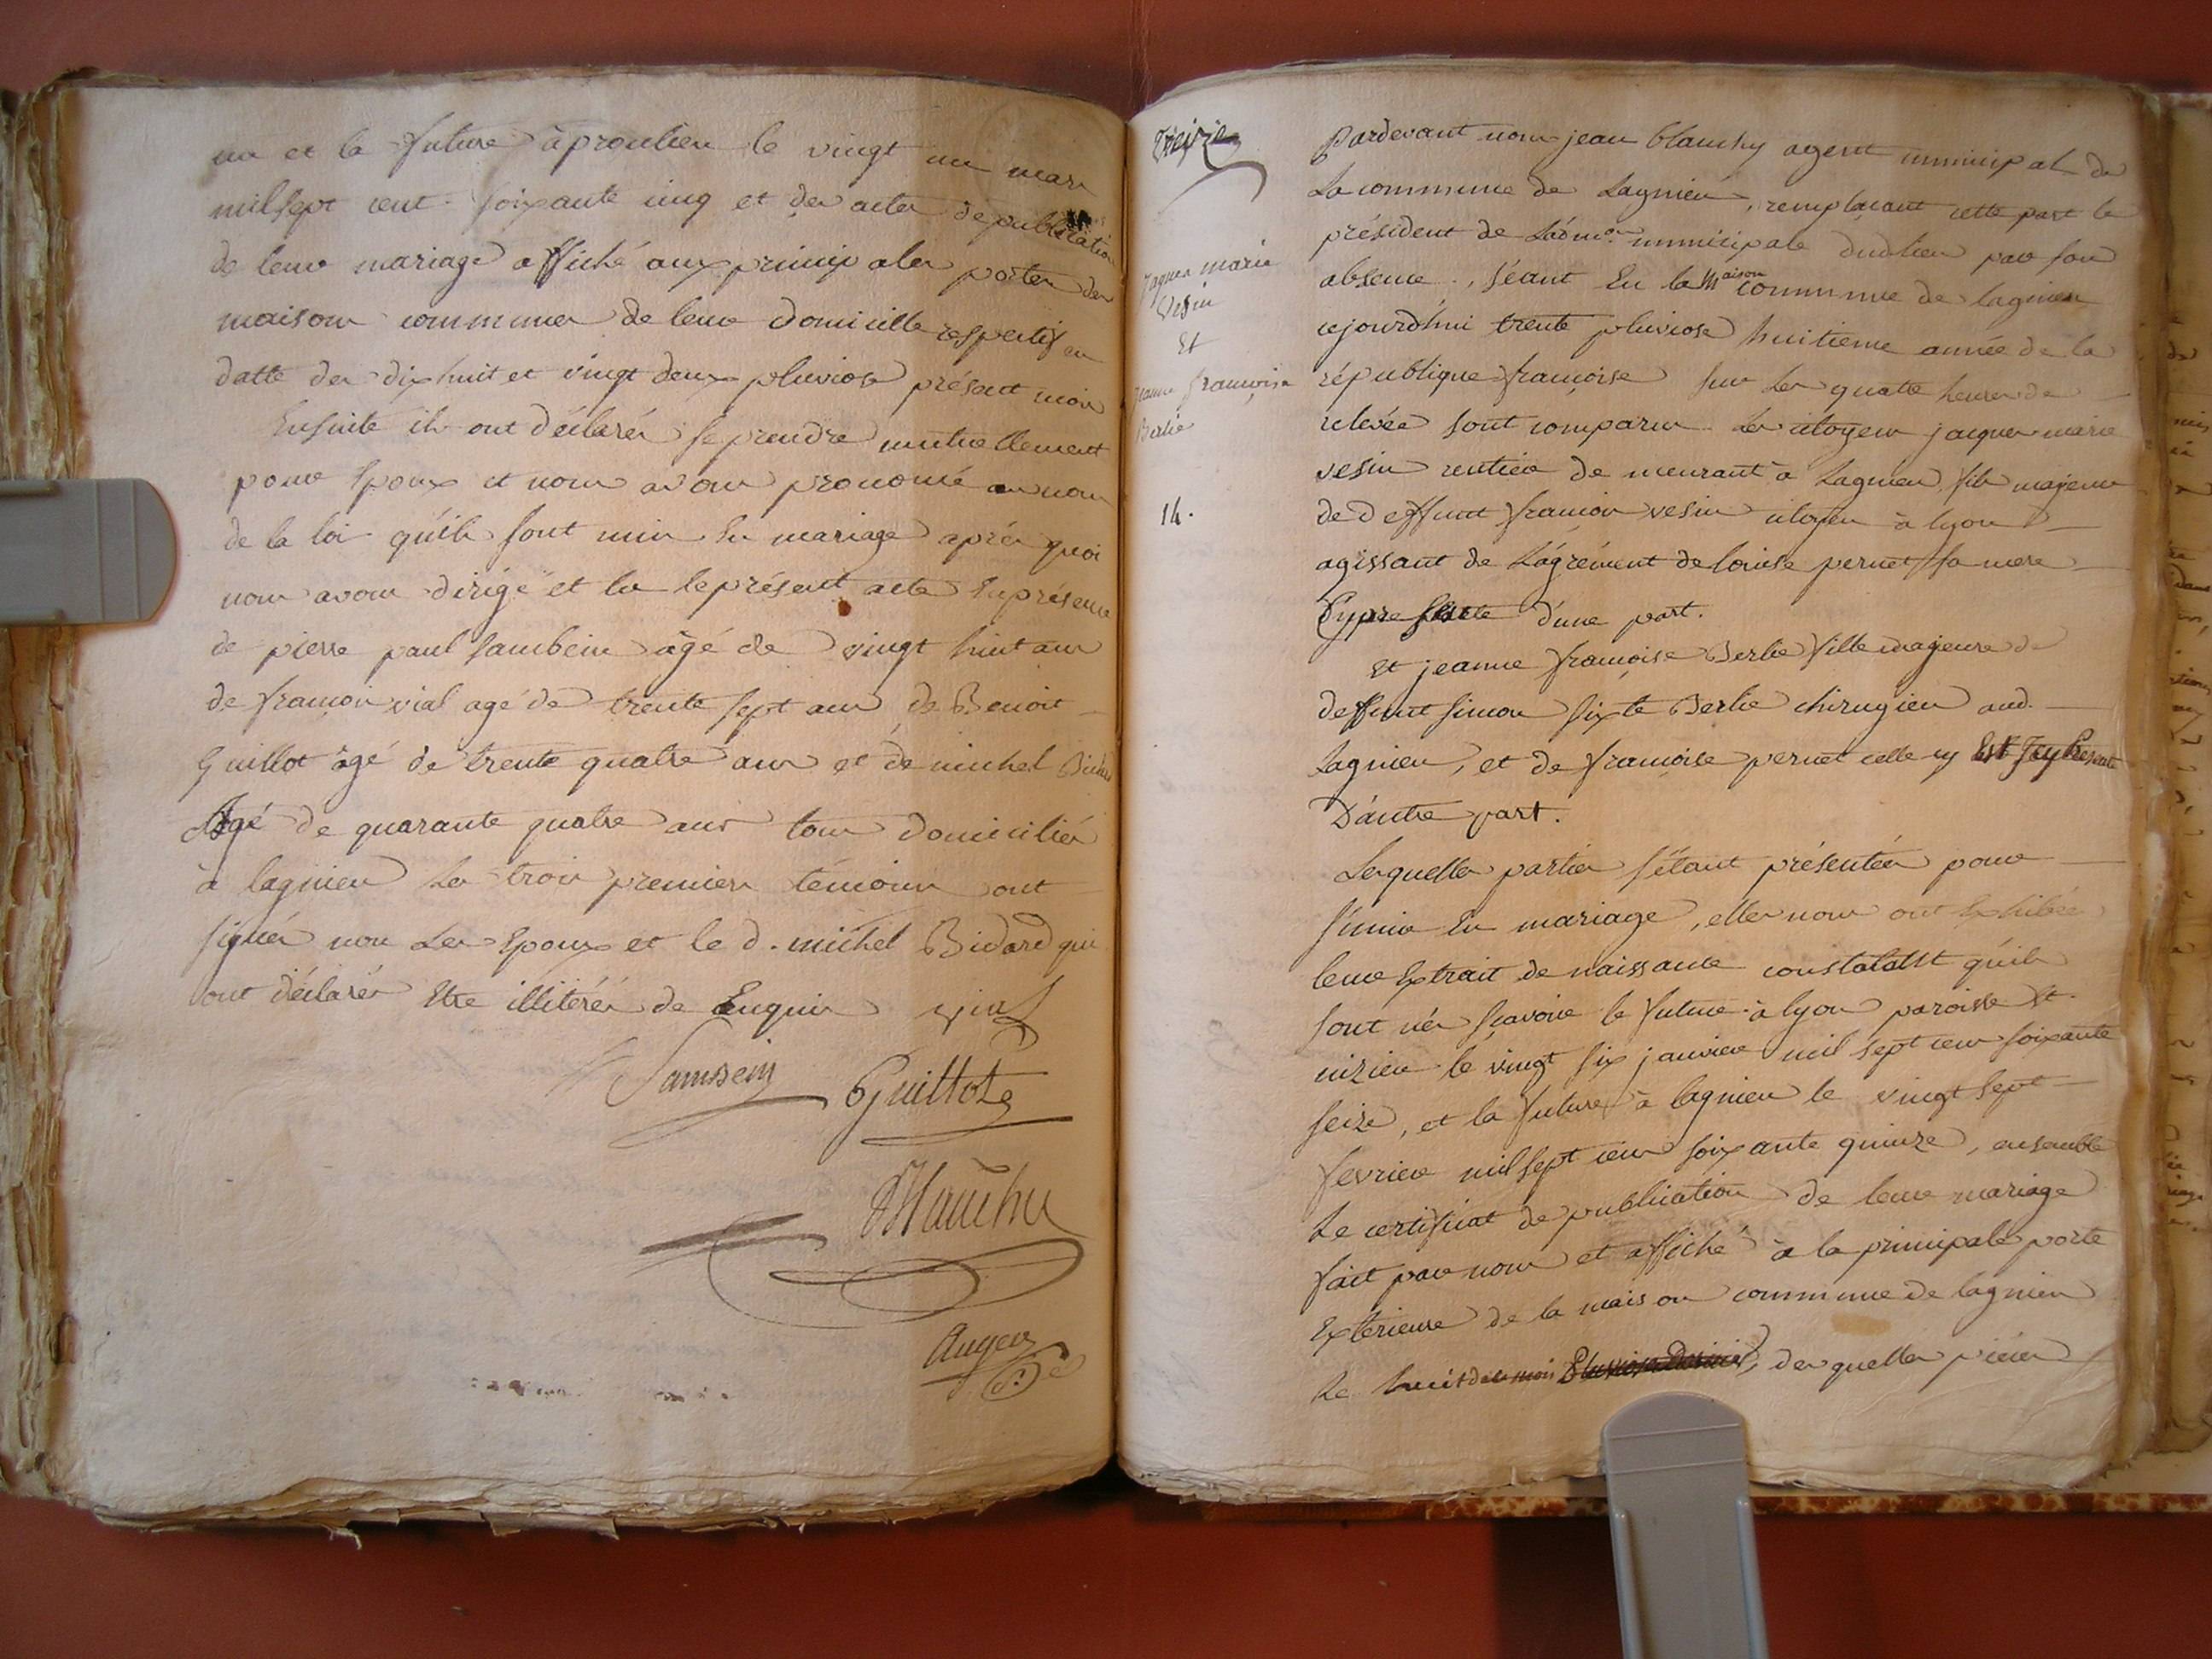 un et la future à proulieu le vingt un mars
mil sept cent soixante cinq et des actes de publication
de leur mariage affiché aux principales portes des
maisons communes de leur domicille respectif en
datte des dix huit et vingt deux pluviose présent mois
Ensuite ils ont déclarés se prendre mutuellement
pour Epoux et nous avons prononcé au nom
de la loi qu'ils sont unis En mariage après quoi
nous avons dirigé et lu le présent acte En présence
de pierre paul sambein âgé de vingt huit ans
de françois vial agé de trente sept ans de Benoit
Guillot âgé de trente quatre ans et de michel Bidard
Agé de quarante quatre ans tous domiciliés
à lagnieu Les trois premiers témoins ont
signés non Les Epoux et le d. michel Bidard qui
ont déclarés Etre illitérés de Enquis vial
Sambein Guillot
Blanchy
Auger
Treize
Jaques marie
Vesin
Et
jeanne françoise
Berlie
14.
Pardevant nous jean blanchy agent municipal de
La commune de Lagnieu, remplaçant cette part le
président de L'adm.on municipale dudit lieu par son
absence, séant En la Maison commune de lagnieu
cejourd'hui trente pluviose huitieme année de la
république françoise sur Les quatre heures de
relevée sont comparus Le citoyen jacques marie
vesin rentier demeurant à Lagnieu, fils majeur
de deffunt françois vesin citoyen à lyon
agissant de L'agrément de louise pernet sa mere
Cypresente d'une part.
Et jeanne françoise Berlie fille majeure de
deffunt simon sixte Berlie chirugien aud.
Lagnieu, et de françoise pernet celle cy Est Icy Presente
D'autre part.
Lesquelles parties s'étant présentées pour
s'unir En mariage, elles nous ont Exhibés
leur Extrait de naissance constatant qu'ils
sont nés sçavoir le future à lyon paroisse st.
nizier le vingt six janvier mil sept cens soixante
seize, et la future à lagnieu le vingt sept
fevrier mil sept cens soixante quinze, ensemble
Le certificat de publication de leur mariage
fait par nous et affiché à la principale porte
Extérieure de la maison commune de lagnieu
Le huit de ce mois, desquelles pièces